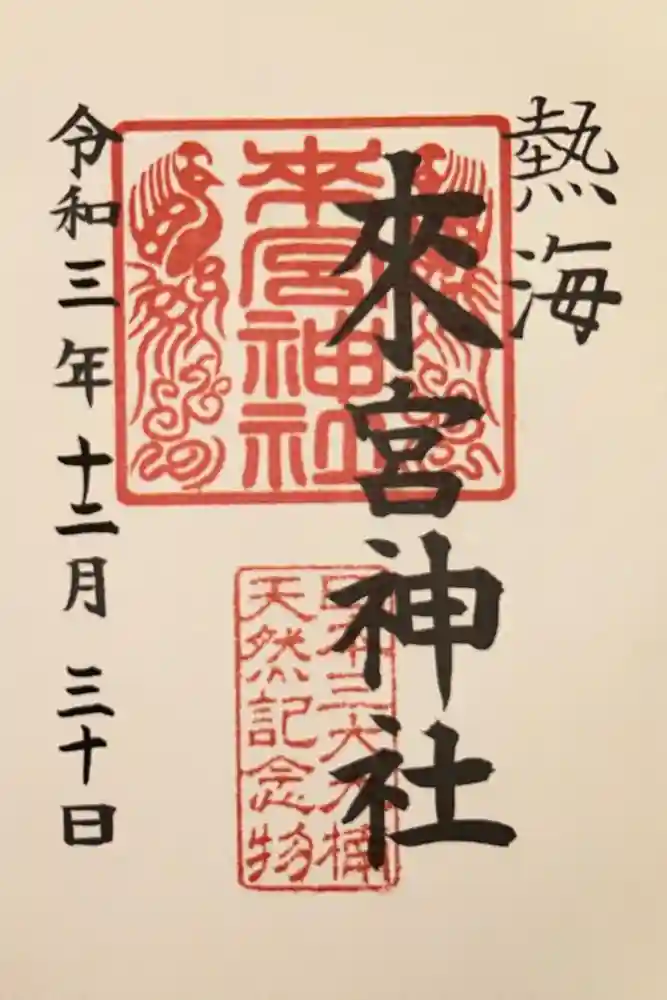 熱海
來宮神社
来宮神社
日本三大大楠
天然記念物
令和三年十二月三十日